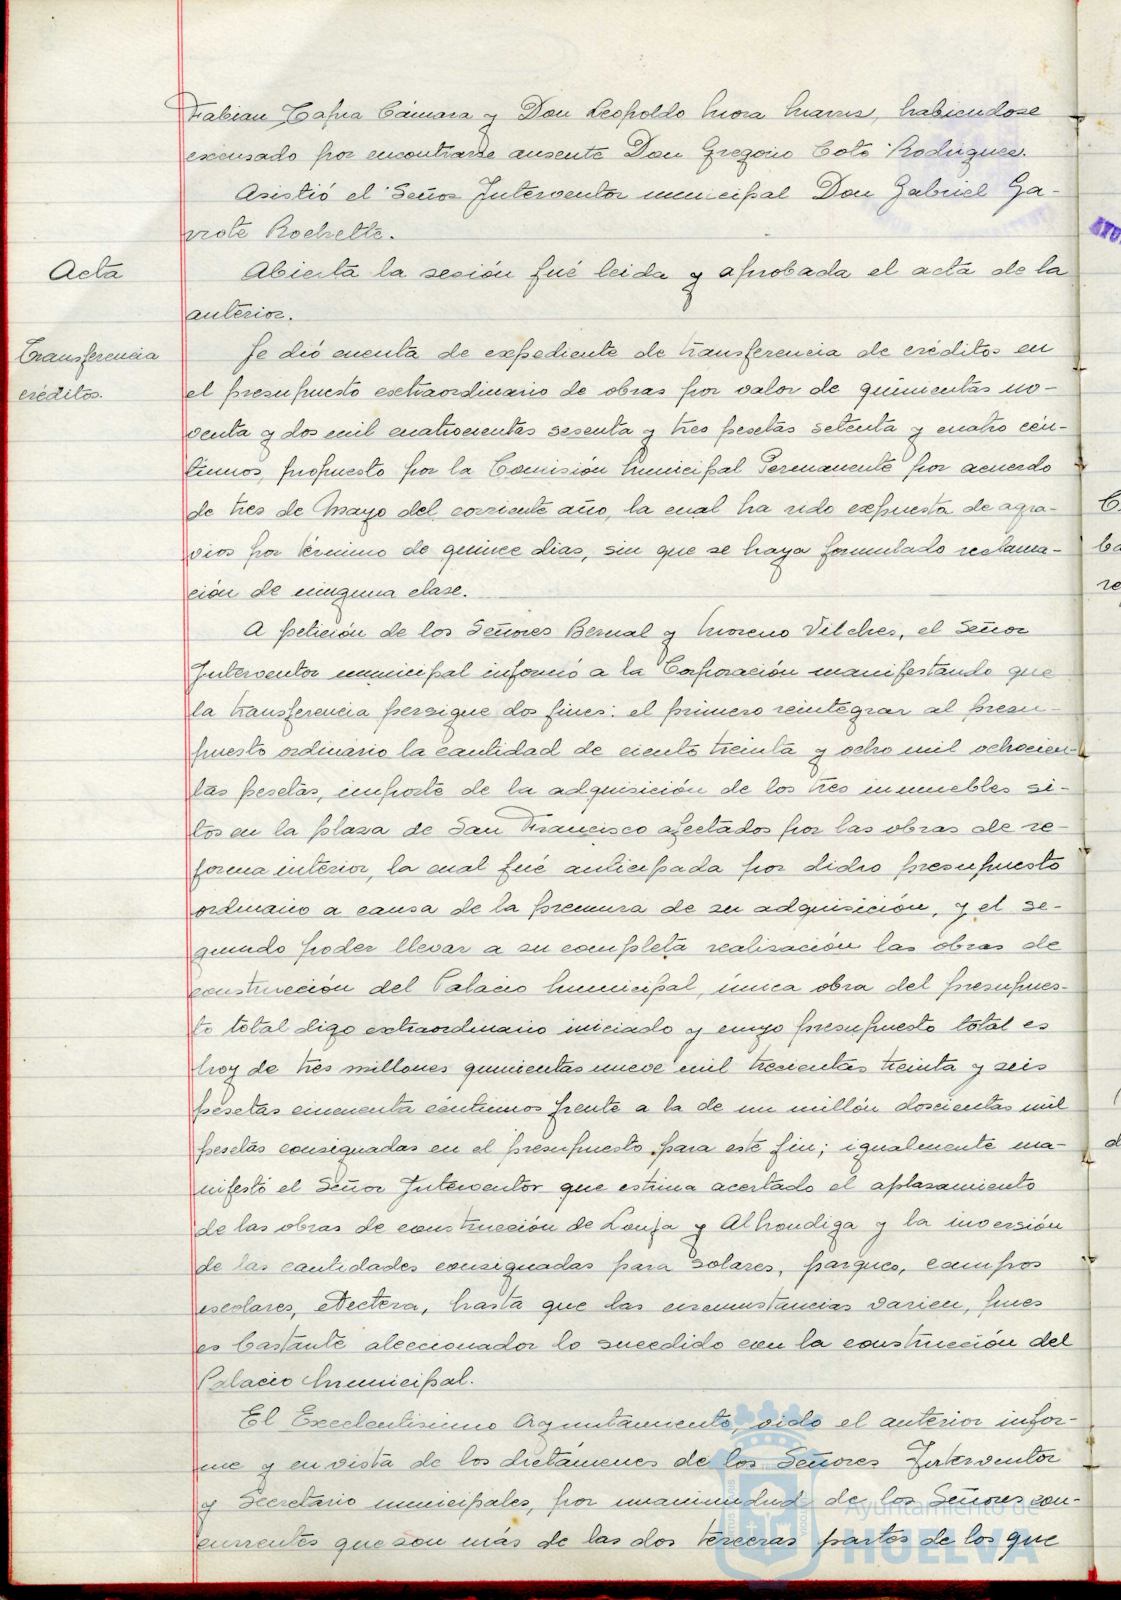 Fabian Tapia Cámara y Don Leopoldo Mora, habiendose
excusado por encontrarse ausente Don Gregorio Coto Rodriguez.
Asistió el Señor Interventor municipal Don Gabriel Ga-
rrote Rochette.
Acta
Abierta la sesión fué leida y aprobada el acta de la
anterior.
Transferencia
créditos.
Se dió cuenta de expediente de transferencia de créditos en
el presupuesto extraordinario de obras por valor de quinientas no-
venta y dos mil cuatrocientas sesenta y tres pesetas setenta y cuatro cén-
timos, propuesto por la Comisión Municipal Permanente por acuerdo
de tres de Mayo del corriente año, la cual ha sido expuesta de agra-
vios por término de quince dias, sin que se haya formulado reclama-
ción de ninguna clase.
A petición de los Señores Bernal y Moreno Vilches, el Señor
Interventor municipal informó a la Corporación manifestando que
la transferencia persigue dos fines: el primero reintegrar al presu-
puesto ordinario la cantidad de ciento treinta y ocho mil ochocien-
tas pesetas, importe de la adquisición de los tres inmuebles si-
tos en la plaza de San Francisco afectados por las obras de re-
forma interior, la cual fué anticipada por dicho presupuesto
ordinario a causa de la premura de su adquisición, y el se-
gundo poder llevar a su completa realización las obras de
construcción del Palacio Municipal, única obra del presupues-
to total digo extraordinario iniciado y cuyo presupuesto total es
hoy de tres millones quinientas nueve mil trescientas treinta y seis
pesetas cincuenta céntimos frente a la de un millón doscientas mil
pesetas consignadas en el presupuesto para este fin; igualmente ma-
nifestó el Señor Interventor que estima acertado el aplazamiento
de las obras de construcción de Lonja y Alhondiga y la inversión
de las cantidades consignadas para solares, parques, campos
escolares, etectera, hasta que las circunstancias varien, pues
es bastante aleccionador lo sucedido con la construcción del
Palacio Municipal.
El Excelentisimo Ayuntamiento, oido el anterior infor-
me y en vista de los dictámenes de los Señores Interventor
y Secretario municipales, por unanimidad de los Señores con-
currentes que son más de las dos terceras partes de los que
Ayuntamiento de
HUELVA